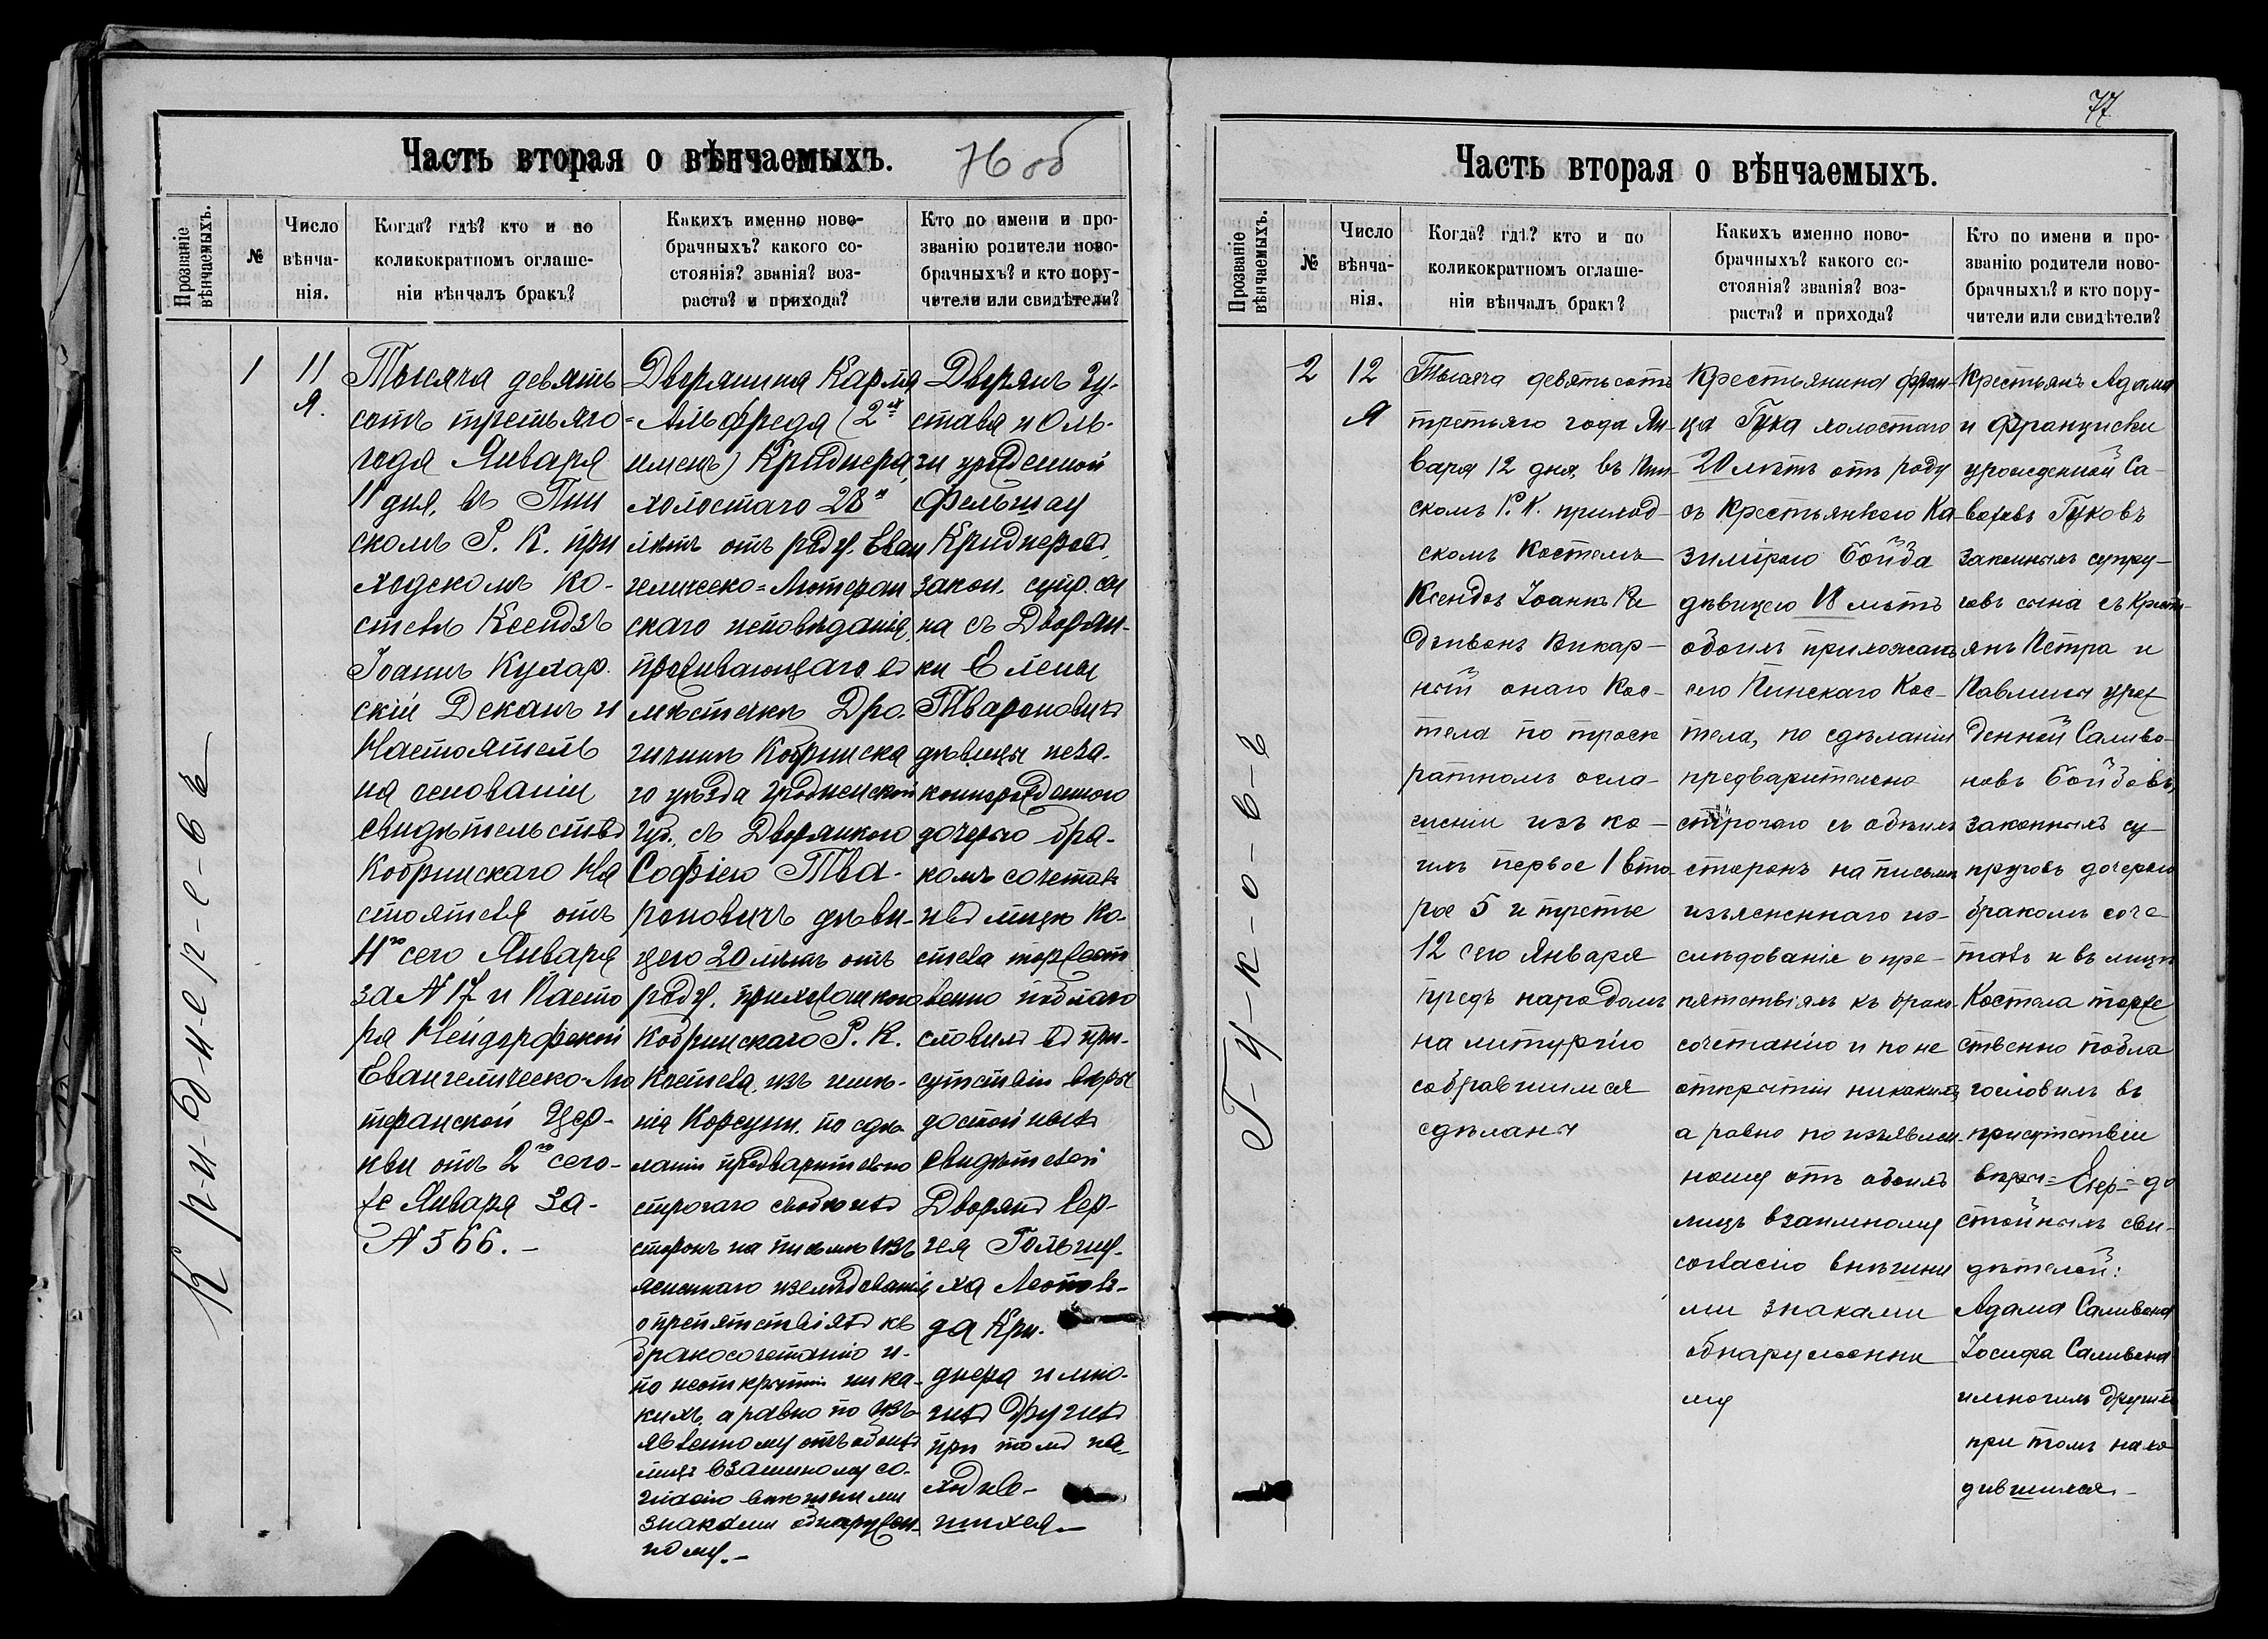 Часть вторая о вѣнчаемыхъ.
76 об
Прозваніе вѣнчаемыхъ.
№
Число вѣнча-
нія.
Когда? гдѣ? кто и по
коликократномъ оглаше-
ніи вѣнчалъ бракъ?
Какихъ именно ново-
брачныхъ? какого со-
стоянія? званія? воз-
раста? и прихода?
Кто по имени и про-
званію родители ново-
брачныхъ? и кто пору-
чители или свидѣтели?
К р-и-д-н-е-р-о-в-ъ
1
11
Я.
Тысяча девять
сотъ третьяго
года Января
11 дня, въ Пин
скомъ Р. К. при
ходскомъ Ко-
стелѣ Ксендзъ
Іоаннъ Кухар
скій Деканъ и
Настоятель
на основаніи
свидѣтельствъ
Кобринскаго На
стоятеля отъ
4го сего Января
за N 17 и Пасто
ра Нейдорфской
Евангелическо-Лю
теранской Цер-
кви отъ 2го сего-
же Января за-
N 566.-
Дворянина Карла
-Альфреда (2хъ
именъ) Криднера,
холостаго 28и
лѣтъ отъ роду, Еван
гелическо=Лютеран
скаго исповѣданія,
проживающаго въ
мѣстечкѣ Дро-
гичинѣ Кобринска
го уѣзда Гродненской
губ., съ Дворянкою
Софіею Тва-
роновичъ дѣви-
цею 20 лѣтъ отъ
роду, прихожанкою
Кобринскаго Р. К.
Костела, изъ имѣ-
нія Корсунь, по сдѣ-
ланіи предварительно
строгаго съ обоихъ
сторонъ на письмѣ изъ
ясненнаго изслѣдованія
о препятствіяхъ къ
бракосочетанію и-
по неоткрытіи ника-
кихъ, а равно по изъ-
явленному отъ обоихъ
лицъ взаимному со-
гласію внѣшними
знаками обнаружен-
ному.-
Дворянъ Гу-
става и Оль-
ги урожденной
Фельшау
Криднеровъ,
закон. супр. сы
на съ Дворян-
ки Елены
Твароновичъ
дѣвицы неза-
коннорожденною
дочерью бра-
комъ сочеталъ
и въ лицѣ Ко-
стела торжест
венно поблаго
словилъ въ при-
сутствіи вѣры
достойныхъ
свидѣтелей
Дворянъ Сер-
гея Гольшу-
ха Леополь-
да Кри-
днера и мно-
гихъ другихъ
при томъ на-
ходив-
шихся.-
77
Часть вторая о вѣнчаемыхъ.
Прозваніе вѣнчаемыхъ.
№
Число вѣнча-
нія.
Когда? гдѣ? кто и по
коликократномъ оглаше-
ніи вѣнчалъ бракъ?
Какихъ именно ново-
брачныхъ? какого со-
стоянія? званія? воз-
раста? и прихода?
Кто по имени и про-
званію родители ново-
брачныхъ? и кто пору-
чители или свидѣтели?
Г-у-к-о-в-ъ
2
12
Я
Тысяча девятьсотъ
третьяго года Ян-
варя 12 дня, въ Пин-
скомъ Р. К. приход-
скомъ Костелѣ
Ксендзъ Іоаннъ
Викар-
ный онаго Кос-
тела по троек
ратномъ огла-
шеніи изъ ко-
ихъ первое 1 вто-
рое 5 и третье
12 сего Января
предъ народомъ
на литургію
собравшимся
сдѣланы
Крестьянина Фран-
ца Гука холостаго
20 лѣтъ отъ роду
съ Крестьянкою Ка-
зимірою Бойда
дѣвицею 18 лѣтъ
обоихъ прихожанъ
сего Пинскаго Кос-
тела, по сдѣланіи
предварительно
строгаго съ обоихъ
сторонъ на письмѣ
изъясненнаго из-
слѣдованія о пре-
пятствіяхъ къ брако-
сочетанію и по не
открытіи никакихъ,
а равно по изъявлен-
ному отъ обоихъ
лицъ взаимному
согласію внѣшни
ми знаками
обнаруженно
му
Крестьянъ Адама
и Франциски
урожденной Са-
Гуковъ
законныхъ супру-
говъ сына съ Кресть-
янъ Петра и
Павлины урож
денной Саливо-
новъ Бойдовъ,
законныхъ су-
пруговъ дочерью
бракомъ соче-
талъ и въ лицѣ
Костела торже
ственно побла
гословилъ въ
присутствіи
вѣры до
стойныхъ сви-
дѣтелей:
Адама Саливона
Іосифа Саливона
и многихъ другихъ
при томъ нахо
дившихся.-